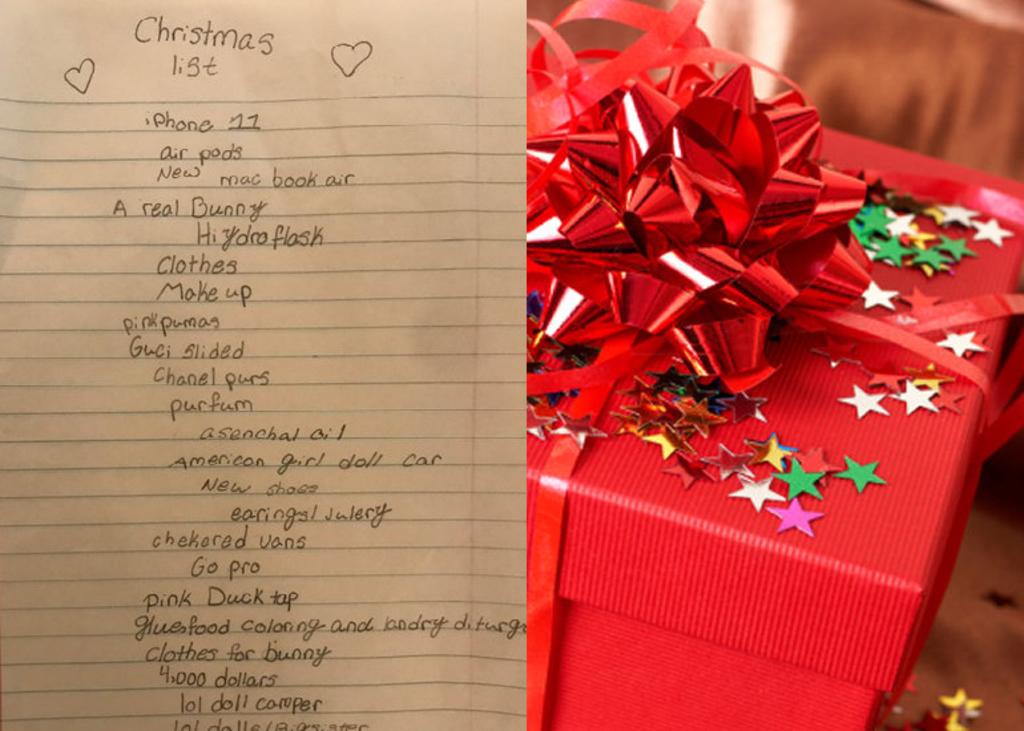 Christmas
list
iPhone 11
air pods
New mac book air
A real Bunny
Hiydroflask
Clothes
Make up
pinkpumas
Guci slided
Chanel purs
purfum
asenchal oil
American girl doll car
New shoes
earings/Julery
chekered vans
Go pro
pink Duck tap
glue,food coloring and landry diturg
Clothes for bunny
4,000 dollars
lol doll camper
lol dolls/Bigsister